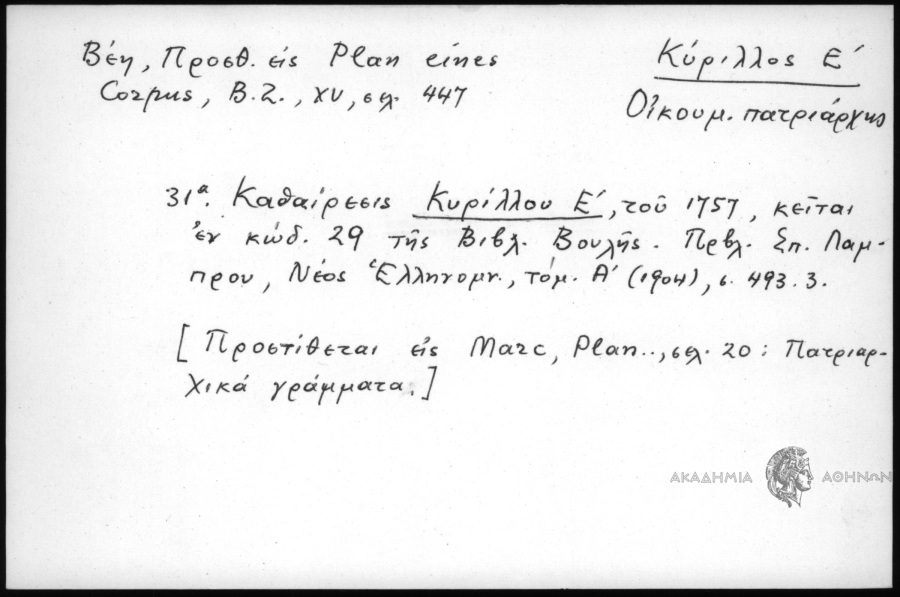 Βέη, Προσθ. εἰς Plan eines
Corpus, B.Z., XV, σελ. 447
Κύριλλος Ε΄
Οἰκουμ. πατριάρχης
31α. Καθαίρεσις Κυρίλλου Ε΄, τοῦ 1757, κεῖται
ἐν κώδ. 29 τῆς Βιβλ. Βουλῆς. Πρβλ. Σπ. Λαμ-
πρου, Νέος Ἑλληνομν., τόμ. Α΄ (1904), σ. 493.3.
[Προστίθεται εἰς Marc, Plan.., σελ. 20: Πατριαρ-
χικά γράμματα.]
ΑΚΑΔΗΜΙΑ ΑΘΗΝΩΝ